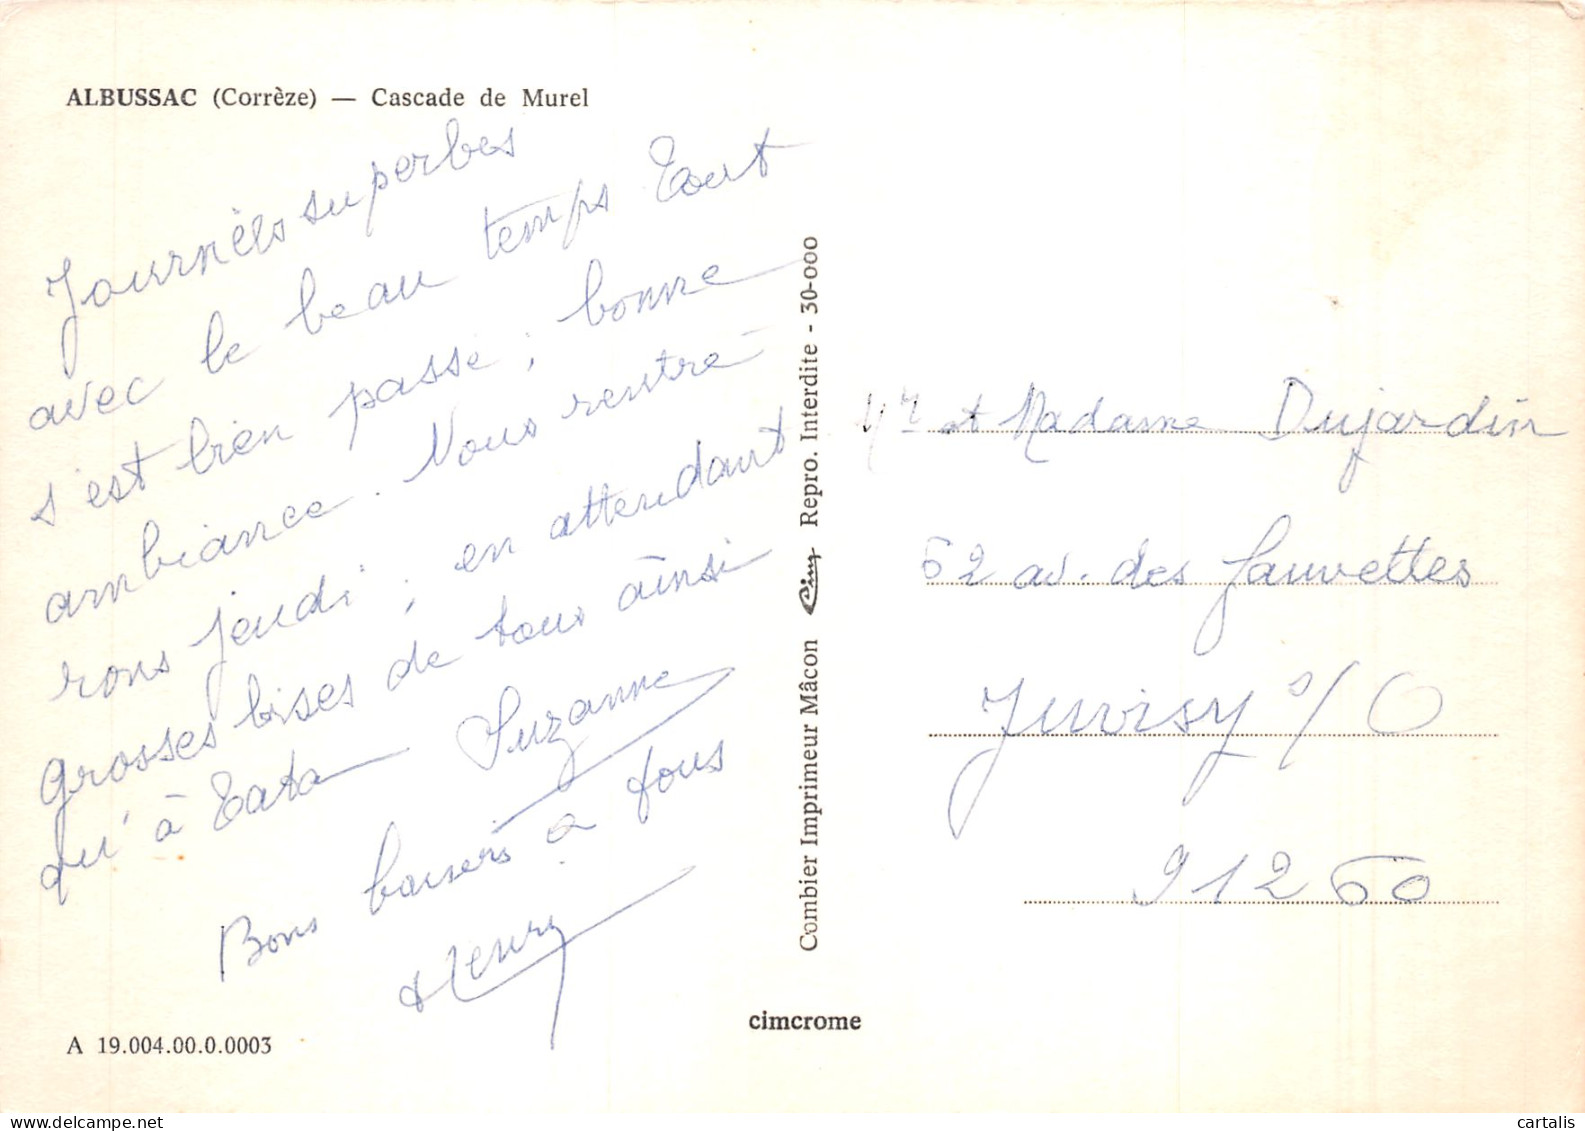 ALBUSSAC (Corrèze) — Cascade de Murel
Journèes superbes
avec le beau temps Tout
s'est bien passé ; bonne
ambiance. Nous rentre
rons jeudi ; en attendant
grosses bises de tous ainsi
qu'à Tata Suzanne
Bons baisers a tous
Henry
A 19.004.00.0.0003
Combier Imprimeur Mâcon Cim Repro. Interdite - 30-000
cimcrome
Mr et Madame Dujardin
62 av. des fauvettes
Juvisy s/O
91260
www.delcampe.net
cartalis